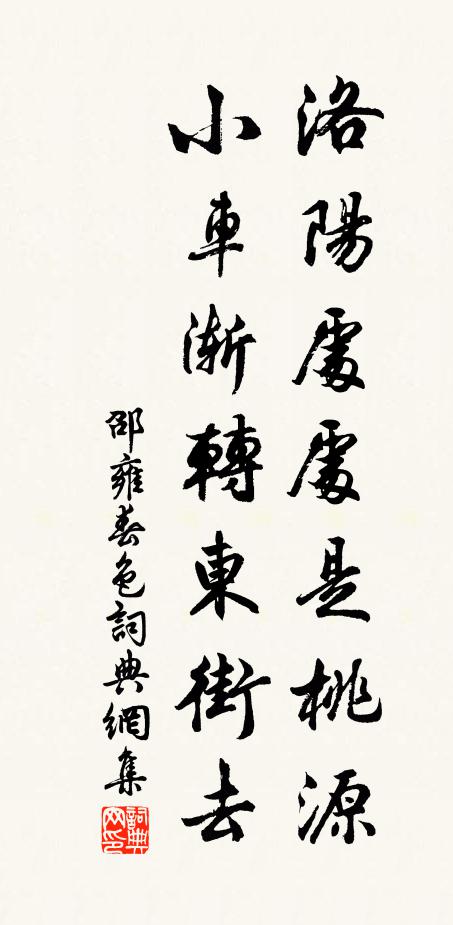 洛陽處處是桃源
小車漸轉東街去
邵雍春色詞典網集
詞典
网印